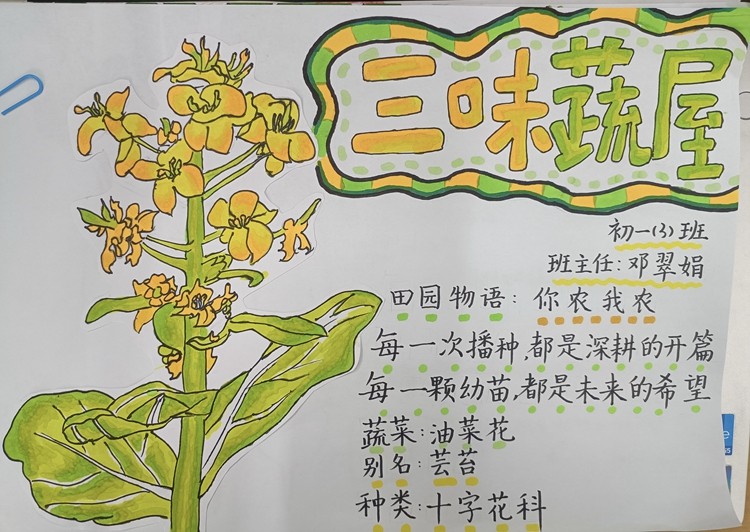 三味蔬屋
初一(3)班
班主任:邓翠娟
田园物语:你农我农
每一次播种,都是深耕的开篇
每一颗幼苗,都是未来的希望
蔬菜:油菜花
别名:芸苔
种类:十字花科